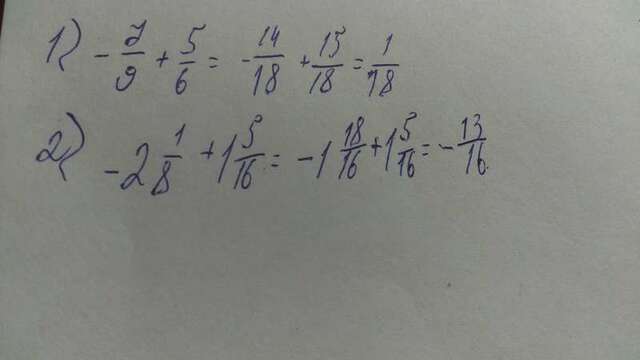 1) - 7/9 + 5/6 = - 14/18 + 15/18 = 1/18
2) - 2 1/8 + 1 5/16 = - 1 18/16 + 1 5/16 = - 13/16